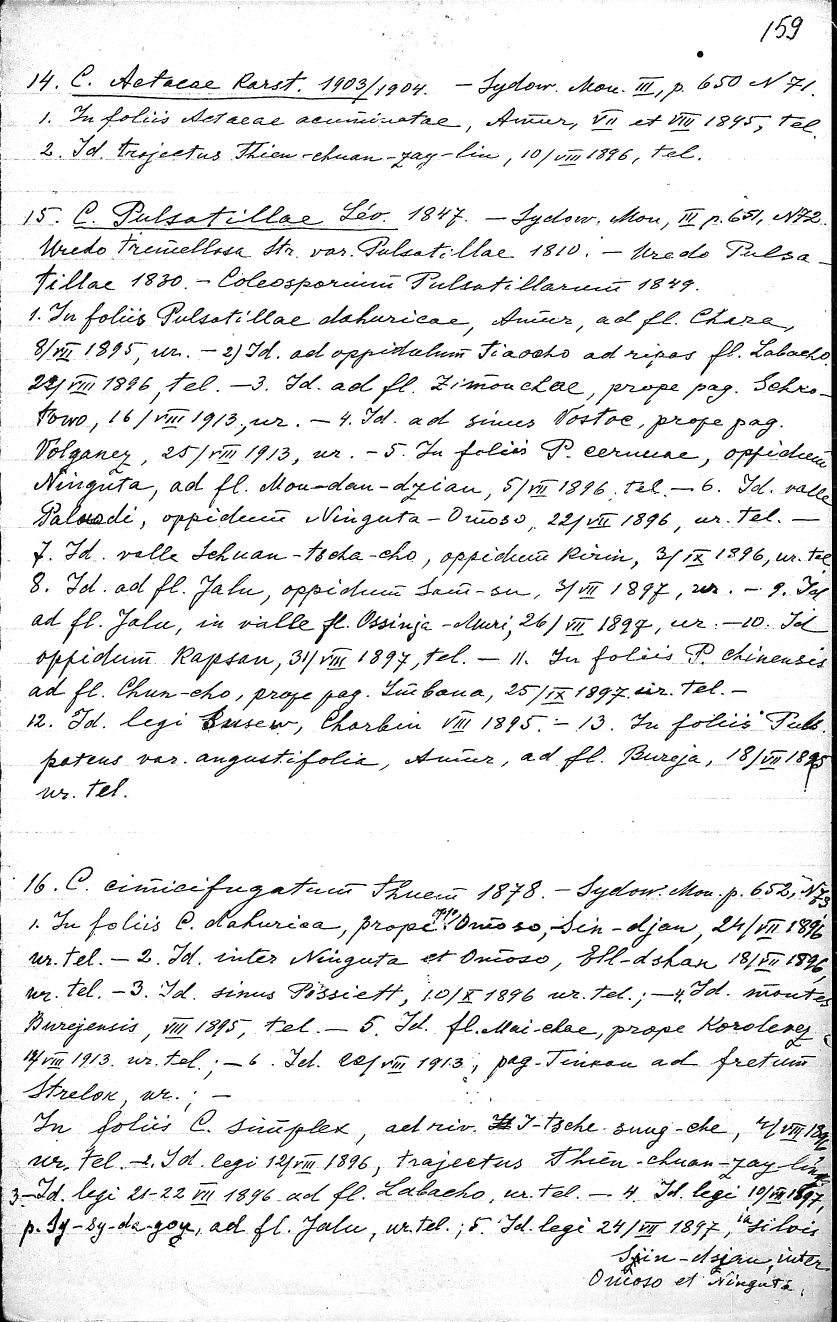 159
14. C. Actaeae Karst. 1903/1904. — Sydow. Mon. III, p. 650 N 71.
1. In foliis Actaeae acuminatae, Amur, VII et VIII 1895, tel.
2. Id. trajectus Thien-chuan-zay-lin, 10/VIII 1896, tel.
15. C. Pulsatillae Lév. 1847. — Sydow. Mon, III p. 651, N72.
Uredo tremellosa Str. var. Pulsatillae 1810. — Uredo Pulsa-
tillae 1830. — Coleosporium Pulsatillarum 1849.
1. In foliis Pulsatillae dahuricae, Amur, ad fl. Chara,
8/VII 1895, ur. — 2) Id. ad oppidulum Tiaocho ad ripas fl. Labacho.
22/VIII 1896, tel. — 3. Id. ad fl. Zimouchae, prope pag. Schko-
towo, 16/VIII 1913, ur. — 4. Id. ad sinus Vostoc, prope pag.
Volganez, 25/VIII 1913, ur. — 5. In foliis P. cernuae, oppidum
Ninguta, ad fl. Mou-dan-dzian, 5/VII 1896, tel. — 6. Id. valle
oppidum Ninguta-Omoso, 22/VII 1896, ur. tel. —
7. Id. valle Schuan-tscha-cho, oppidum Kirin, 3/IX 1896, ur. tel
8. Id. ad fl. Jalu, oppidum Sam-su, 3/VII 1897, ur. — 9. Id
ad fl. Jalu, in valle fl. Ossinja-Muri, 26/VII 1897, ur. — 10. Id
oppidum Kapsan, 31/VIII 1897, tel. — 11. In foliis P. chinensis
ad fl. Chun-cho, prope pag. 25/IX 1897 ur. tel. —
12. Id. legi Charbin VIII 1895. — 13. In foliis Puls.
patens var. angustifolia, Amur, ad fl. Bureja, 18/VII 1895
ur. tel.
16. C. cimicifugatum Thuem 1878. — Sydow. Mon. p. 652, N73
1. In foliis C. dahurica, prope Omoso, Sin-djan, 24/VII 1896
ur. tel. — 2. Id. inter Ninguta et Omoso, Ell-dshan 18/VII 1896,
ur. tel. — 3. Id. sinus Possiett, 10/X 1896 ur. tel.; — 4. Id. montes
Burejensis, VIII 1895, tel. — 5. Id. fl. Mai-chae, prope Korolevez
VIII 1913. ur. tel.; — 6. Id. VIII 1913, pag. Tinkan ad fretum
Strelok, ur.; —
In foliis C. simplex, ad riv. I-tsche-sung-che,
ur. tel. — 2. Id. legi 12/VIII 1896, trajectus Thien-chuan-zay-lin
3. — Id. legi 21-22 VII 1896 ad fl. Labacho, ur. tel. — 4. Id. legi 1897,
p. Sy-sy-da-goy, ad fl. Jalu, ur. tel.; 5. Id. legi 24/VII 1897, in silvis
inter
Omoso et Ninguta.